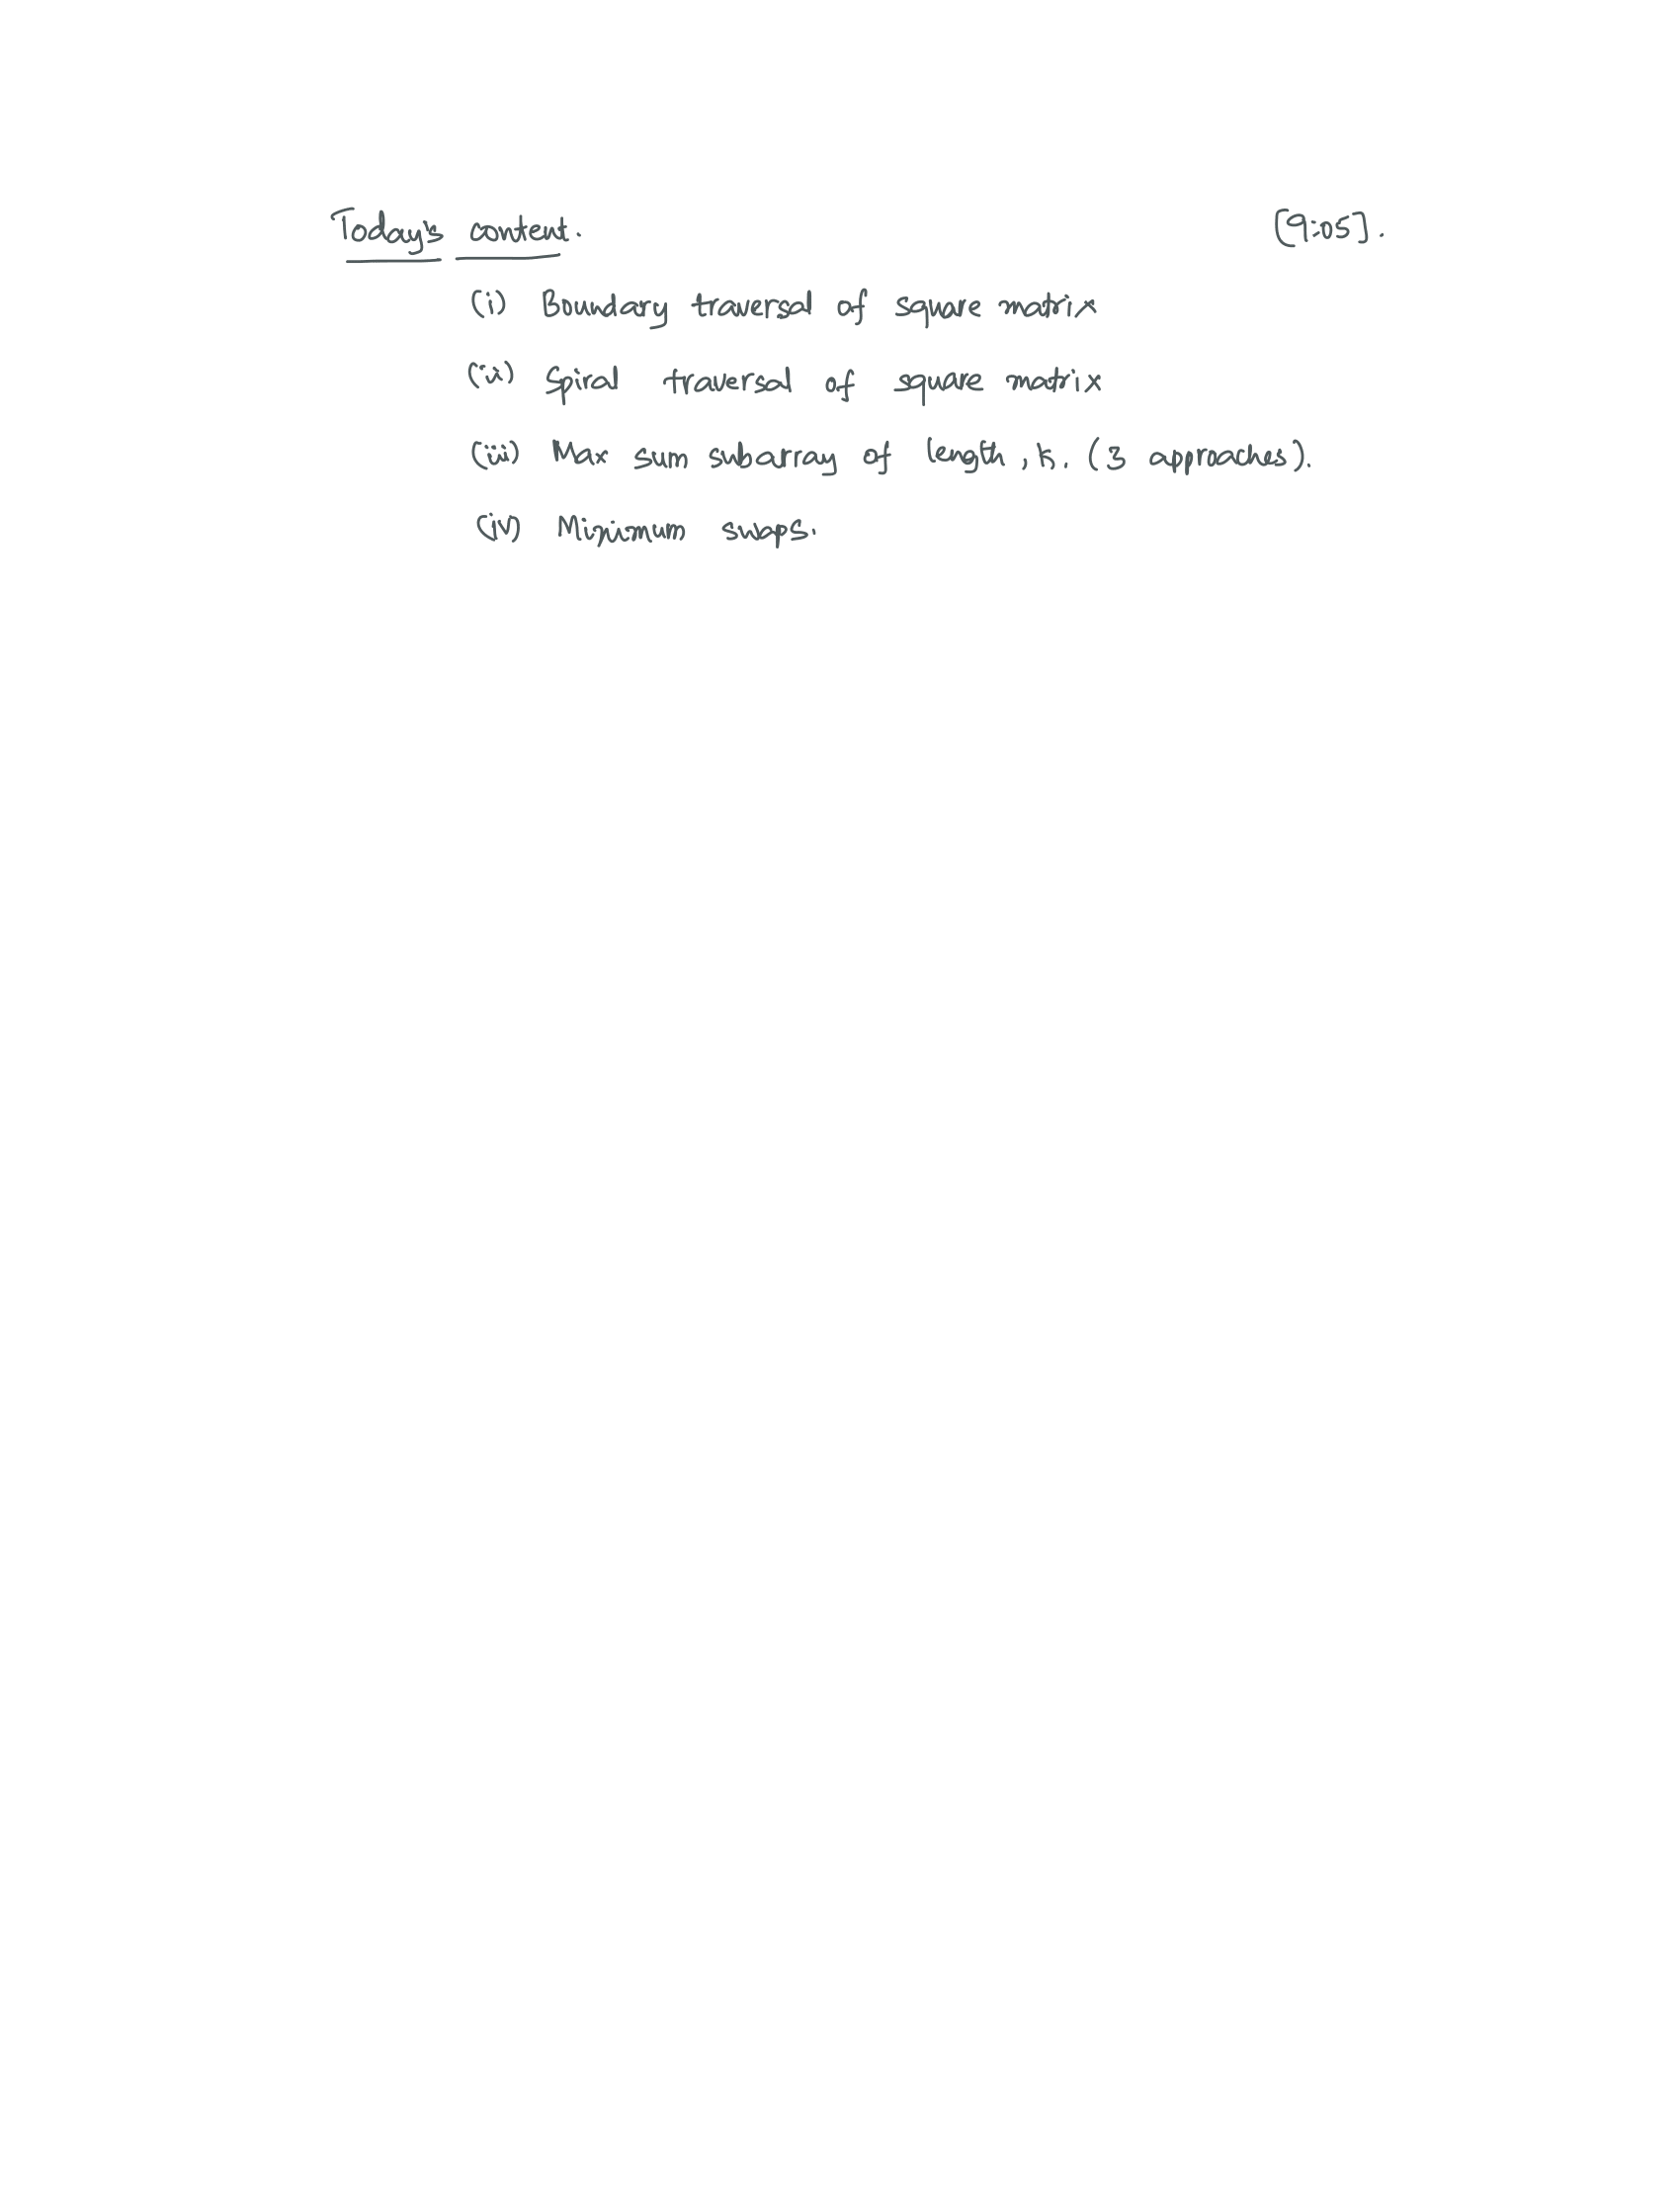 Today's content. [9:05].
(i) Boundary traversal of square matrix
(ii) Spiral traversal of square matrix
(iii) Max sum subarray of length, k. (3 approaches).
(iv) Minimum swaps.